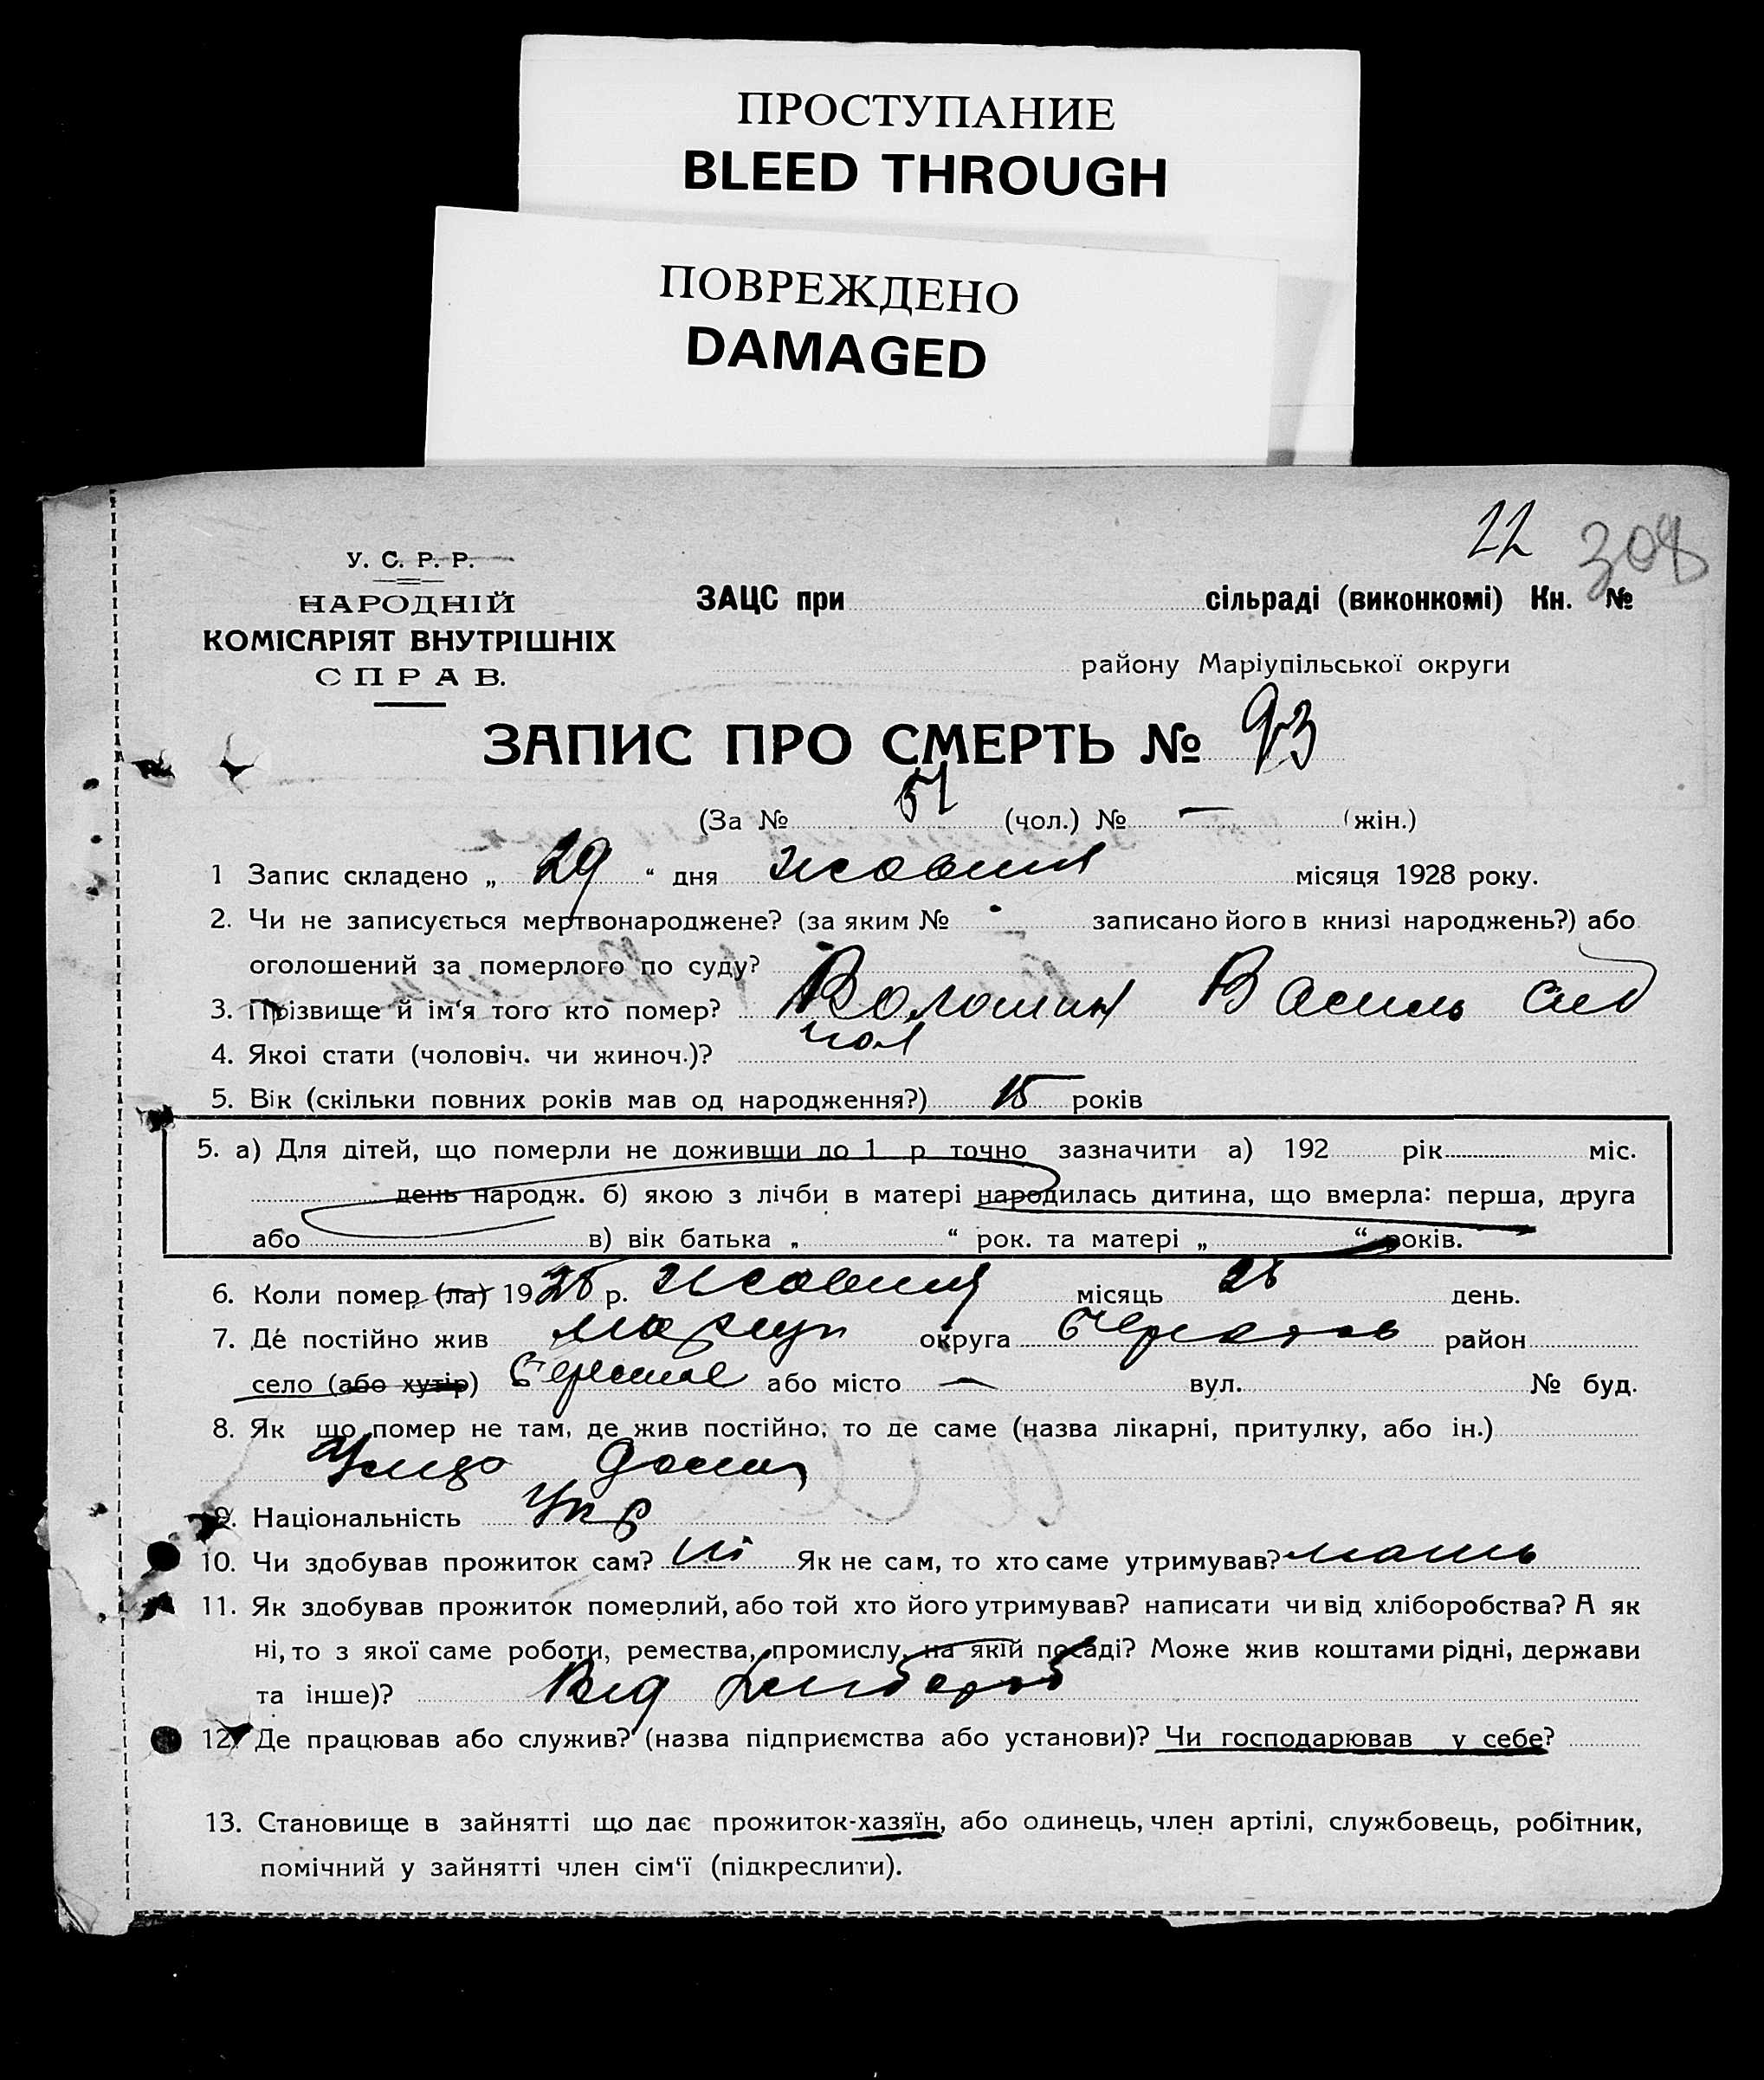 ПРОСТУПАНИЕ
BLEED THROUGH
ПОВРЕЖДЕНО
DAMAGED
22 308
У. С. Р. Р.
НАРОДНІЙ
КОМІСАРІЯТ ВНУТРІШНІХ
СПРАВ.
ЗАЦС при сільраді (виконкомі) Кн. №
району Маріупільської округи
ЗАПИС ПРО СМЕРТЬ № 93
(За № 51 (чол.) № — (жін.)
1 Запис складено „ 29 “ дня жовтня місяця 1928 року.
2. Чи не записується мертвонароджене? (за яким № записано його в книзі народжень?) або
оголошений за померлого по суду?
3. Прізвище й ім‘я того кто помер? Волошин Василь
4. Якоі стати (чоловіч. чи жиноч.)? чол
5. Вік (скільки повних років мав од народження?) 15 років
5. а) Для дітей, що померли не доживши до 1 р точно зазначити а) 192 рік міс.
день народж. б) якою з лічби в матері народилась дитина, що вмерла: перша, друга
або в) вік батька „ “ рок. та матері „ “ років.
6. Коли помер (ла) 1928 р. жовтня місяць 28 день.
7. Де постійно жив Маріуп округа район
село (або хутір) або місто — вул. № буд.
8. Як що помер не там, де жив постійно, то де саме (назва лікарні, притулку, або ін.)
дома
9. Національність Укр
10. Чи здобував прожиток сам? ні Як не сам, то хто саме утримував? мать
11. Як здобував прожиток померлий, або той хто його утримував? написати чи від хліборобства? А як
ні, то з якої саме роботи, ремества, промислу, на якій посаді? Може жив коштами рідні, держави
та інше)? Від хлібороб
12. Де працював або служив? (назва підприємства або установи)? Чи господарював у себе?
13. Становище в зайнятті що дає прожиток-хазяїн, або одинець, член артілі, службовець, робітник,
помічний у зайнятті член сім‘ї (підкреслити).